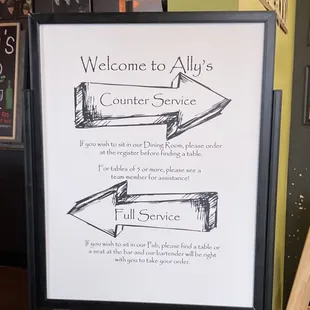 Welcome to Ally's
Counter Service
If you wish to sit in our Dining Room, please order
at the register before finding a table.
For tables of 5 or more, please see a
team member for assistance!
Full Service
If you wish to sit in our Pub, please find a table or
a seat at the bar and our bartender will be right
with you to take your order.